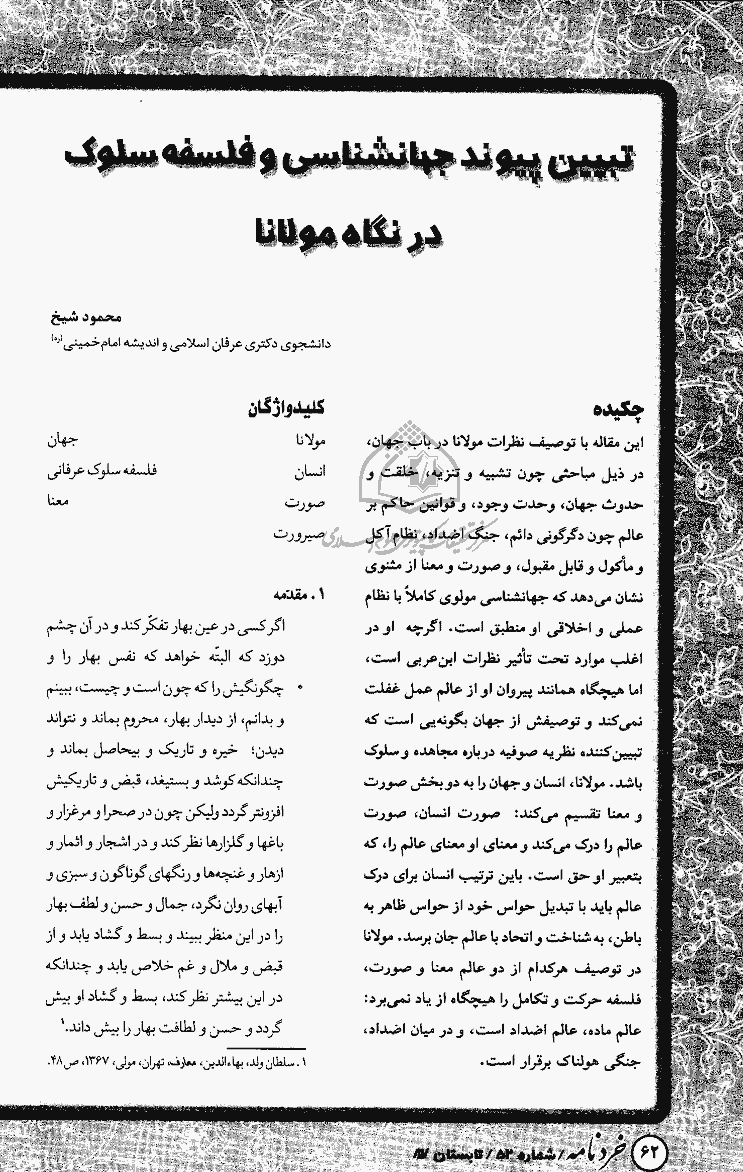 تبیین پیوند جهانشناسی و فلسفه سلوک
در نگاه مولانا
محمود شیخ
دانشجوی دکتری عرفان اسلامی و اندیشه امام‌خمینی(ره)
چکیده
این مقاله با توصیف نظرات مولانا در باب جهان،
در ذیل مباحثی چون تشبیه و تنزیه، خلقت و
حدوث جهان، وحدت وجود، و قوانین حاکم بر
عالم چون دگرگونی دائم، جنگ اضداد، نظام آکل
و مأکول و قابل مقبول، و صورت و معنا از مثنوی
نشان می‌دهد که جهانشناسی مولوی کاملاً با نظام
عملی و اخلاقی او منطبق است. اگرچه او در
اغلب موارد تحت تأثیر نظرات ابن‌عربی است،
اما هیچگاه همانند پیروان او از عالم عمل غفلت
نمی‌کند و توصیفش از جهان بگونه‌یی است که
تبیین‌کننده نظریه صوفیه درباره مجاهده و سلوک
باشد. مولانا، انسان و جهان را به دو بخش صورت
و معنا تقسیم می‌کند: صورت انسان، صورت
عالم را درک می‌کند و معنای او معنای عالم را، که
بتعبیر او حق است. باین ترتیب انسان برای درک
عالم باید با تبدیل حواس خود از حواس ظاهر به
باطن، به شناخت و اتحاد با عالم جان برسد. مولانا
در توصیف هرکدام از دو عالم معنا و صورت،
فلسفه حرکت و تکامل را هیچگاه از یاد نمی‌برد:
عالم ماده، عالم اضداد است، و در میان اضداد،
جنگی هولناک برقرار است.
کلیدواژگان
مولانا جهان
انسان فلسفه سلوک عرفانی
صورت معنا
صیرورت
۱. مقدمه
اگر کسی در عین بهار تفکّر کند و در آن چشم
دوزد که البتّه خواهد که نفس بهار را و
چگونگیش را که چون است و چیست، ببینم
و بدانم، از دیدار بهار، محروم بماند و نتواند
دیدن؛ خیره و تاریک و بیحاصل بماند و
چندانکه کوشد و بستیغد، قبض و تاریکیش
افزونتر گردد ولیکن چون در صحرا و مرغزار و
باغها و گلزارها نظر کند و در اشجار و اثمار و
ازهار و غنچه‌ها و رنگهای گوناگون و سبزی و
آبهای روان نگرد، جمال و حسن و لطف بهار
را در این منظر ببیند و بسط و گشاد یابد و از
قبض و ملال و غم خلاص یابد و چندانکه
در این بیشتر نظر کند، بسط و گشاد او بیش
گردد و حسن و لطافت بهار را بیش داند.۱
۱. سلطان ولد، بهاءالدین، معارف، تهران، مولی، ۱۳۶۷، ص۴۸.
۶۲ خردنامه / شماره ۵۳ / تابستان ۸۷